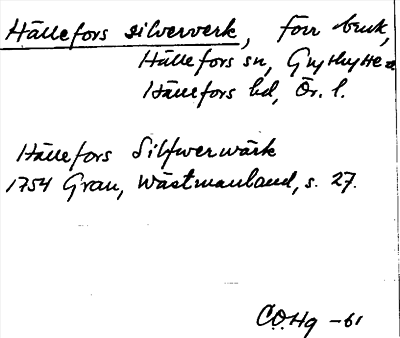 Hällefors silververk, förr bruk,
Hällefors sn, Grythytte o
Hällefors hd, Ör. l.
Hällefors Silfwerwärk
1754 Grau, Wästmanland, s. 27.
C.O.Hg -61